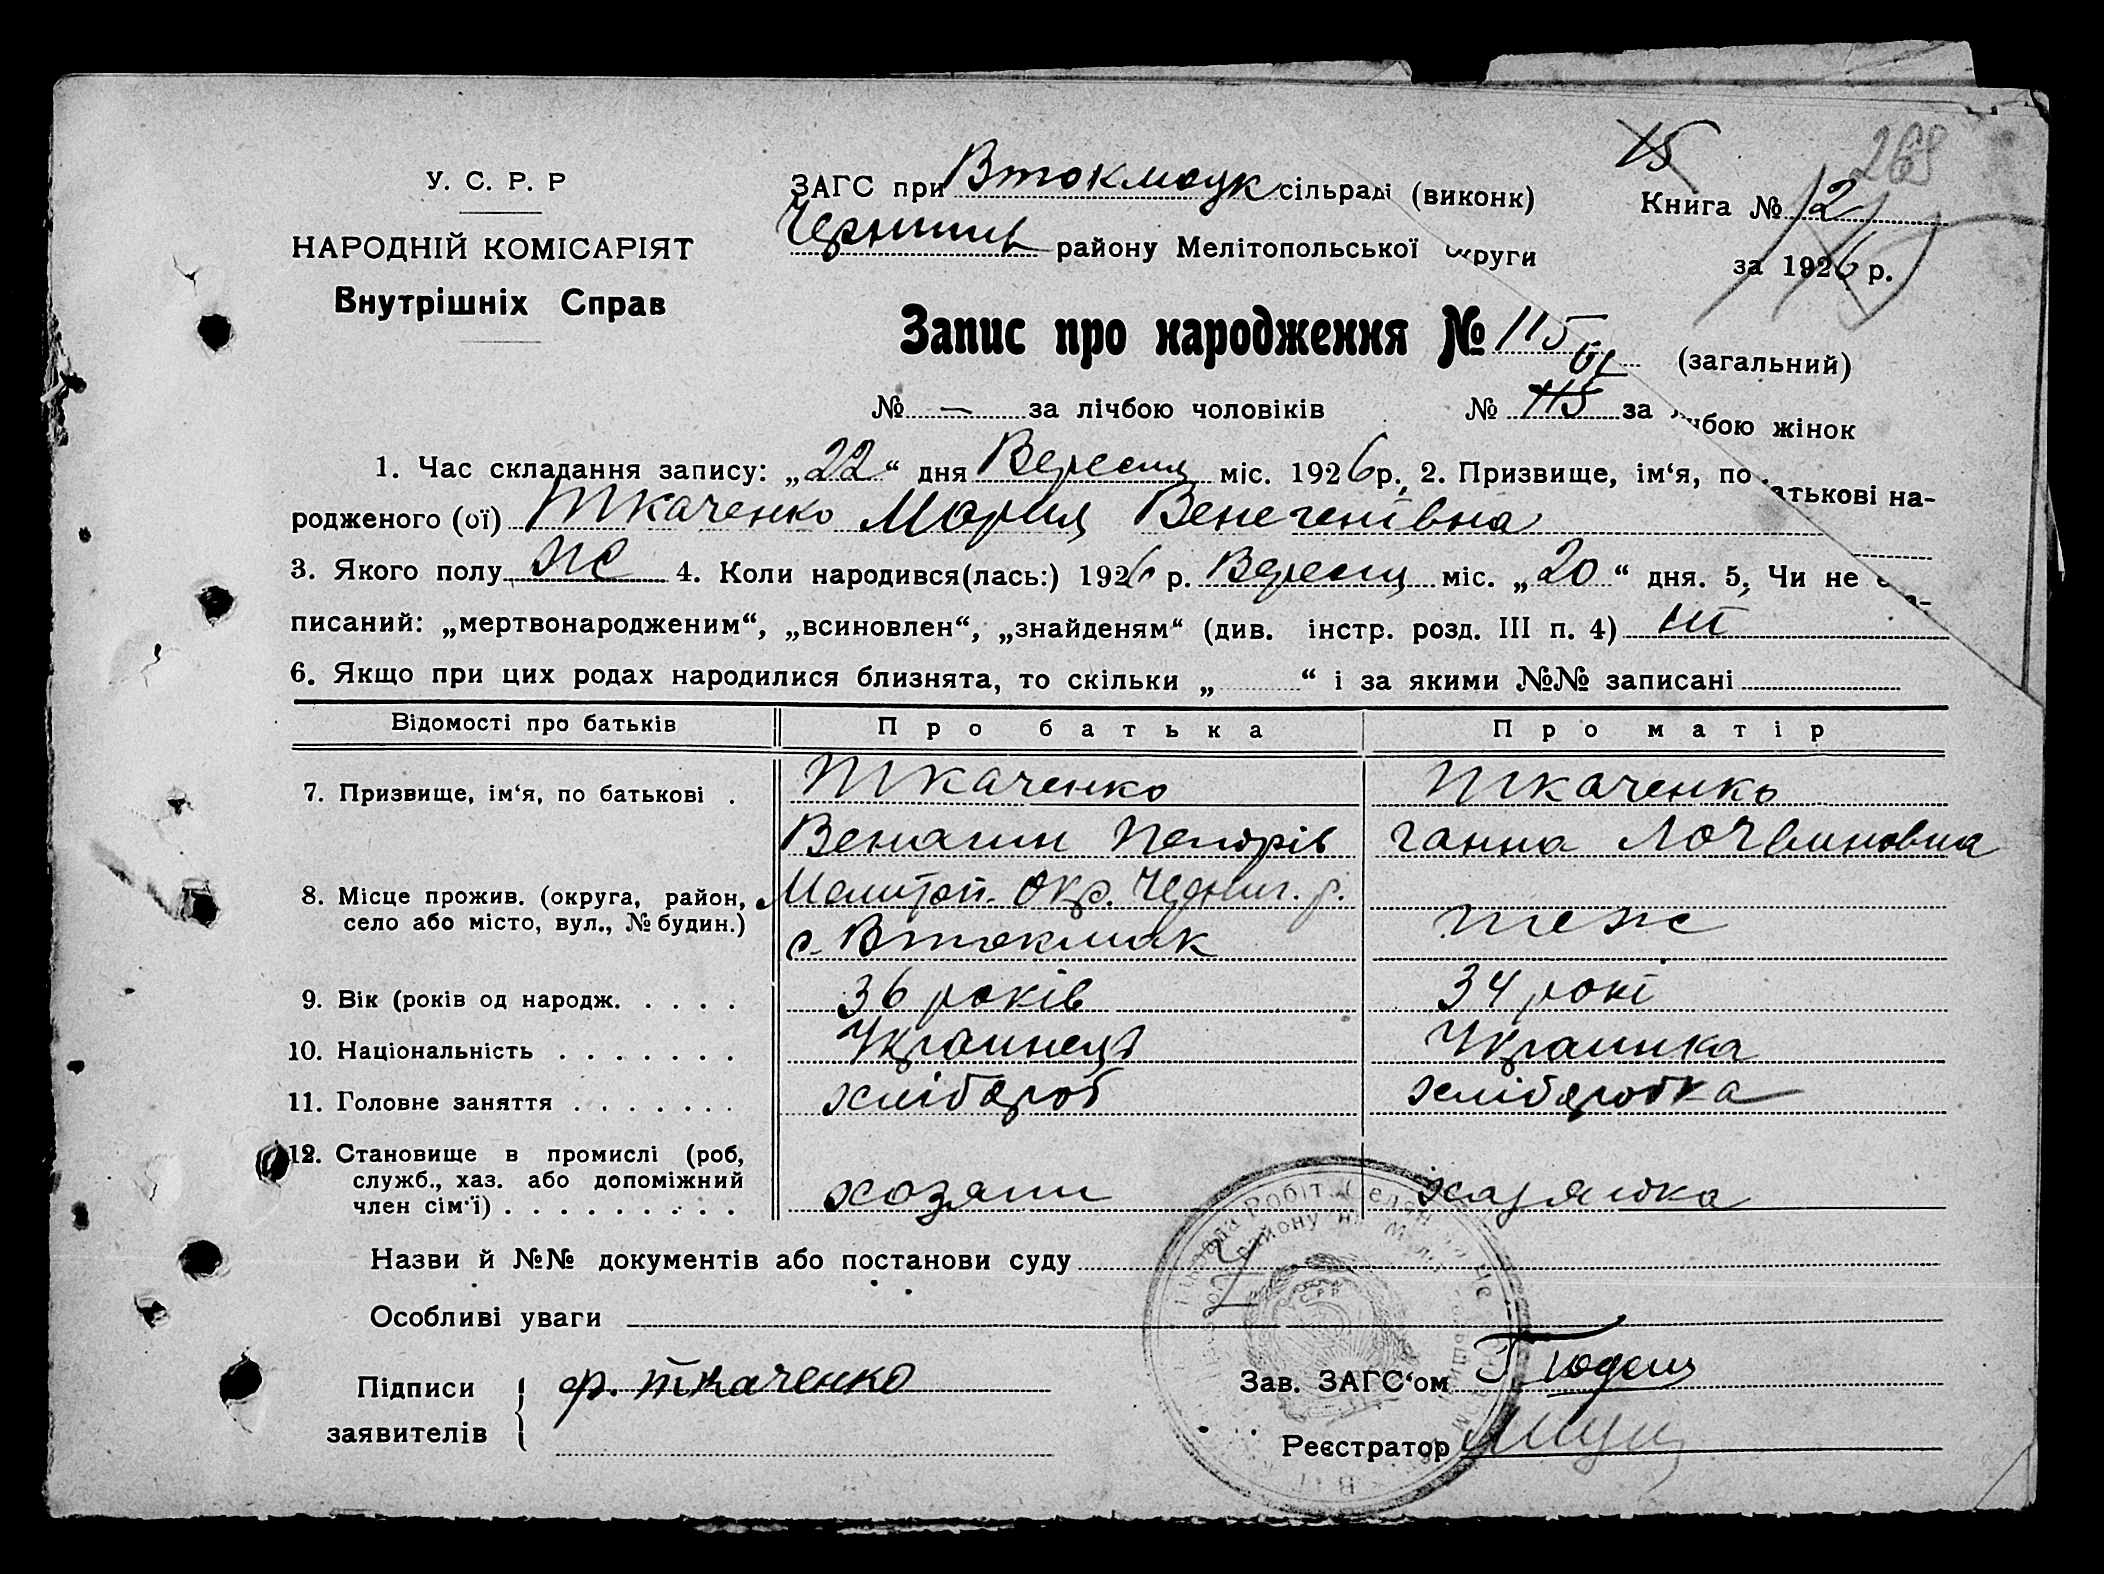 15
268
У. С. Р. Р
НАРОДНІЙ КОМІСАРІЯТ
Внутрішніх Справ
ЗАГС при Втокмацк сільраді (виконк)
Черниги району Мелітопольської округи
Книга № 2
за 1926 р.
Запис про народження № 115 (загальний)
№ — за лічбою чоловіків № 115 за лічбою жінок
1. Час складання запису: „22“ дня Вересня міс. 1926 р. 2. Призвище, ім‘я, по батькові на-
родженого (ої) Ткаченко Мария Венегенівна
3. Якого полу ж 4. Коли народився(лась:) 1926 р. Вересня міс. „20“ дня. 5, Чи не за-
писаний: „мертвонародженим“, „всиновлен“, „знайденям“ (див. інстр. розд. III п. 4) ні
6. Якщо при цих родах народилися близнята, то скільки „ “ і за якими №№ записані
Відомості про батьків Про батька Про матір
7. Призвище, ім‘я, по батькові . Ткаченко Ткаченко
Ганна
8. Місце прожив. (округа, район, Мелитоп. Окр. Черниг. р.
село або місто, вул., № будин.) с. Втокмак теж
9. Вік (років од народж. . . . . 36 років 34 рокі
10. Національність . . . . . . . Украинець Украинка
11. Головне заняття . . . . . . . хлібороб хлібаробка
12. Становище в промислі (роб,
служб., хаз. або допоміжний
член сім‘ї) . . . . . . . . . хозяин хазяйка
Назви й №№ документів або постанови суду
Особливі уваги
Підписи
заявителів
ф. Ткаченко
Зав. ЗАГС‘ом
Реєстратор